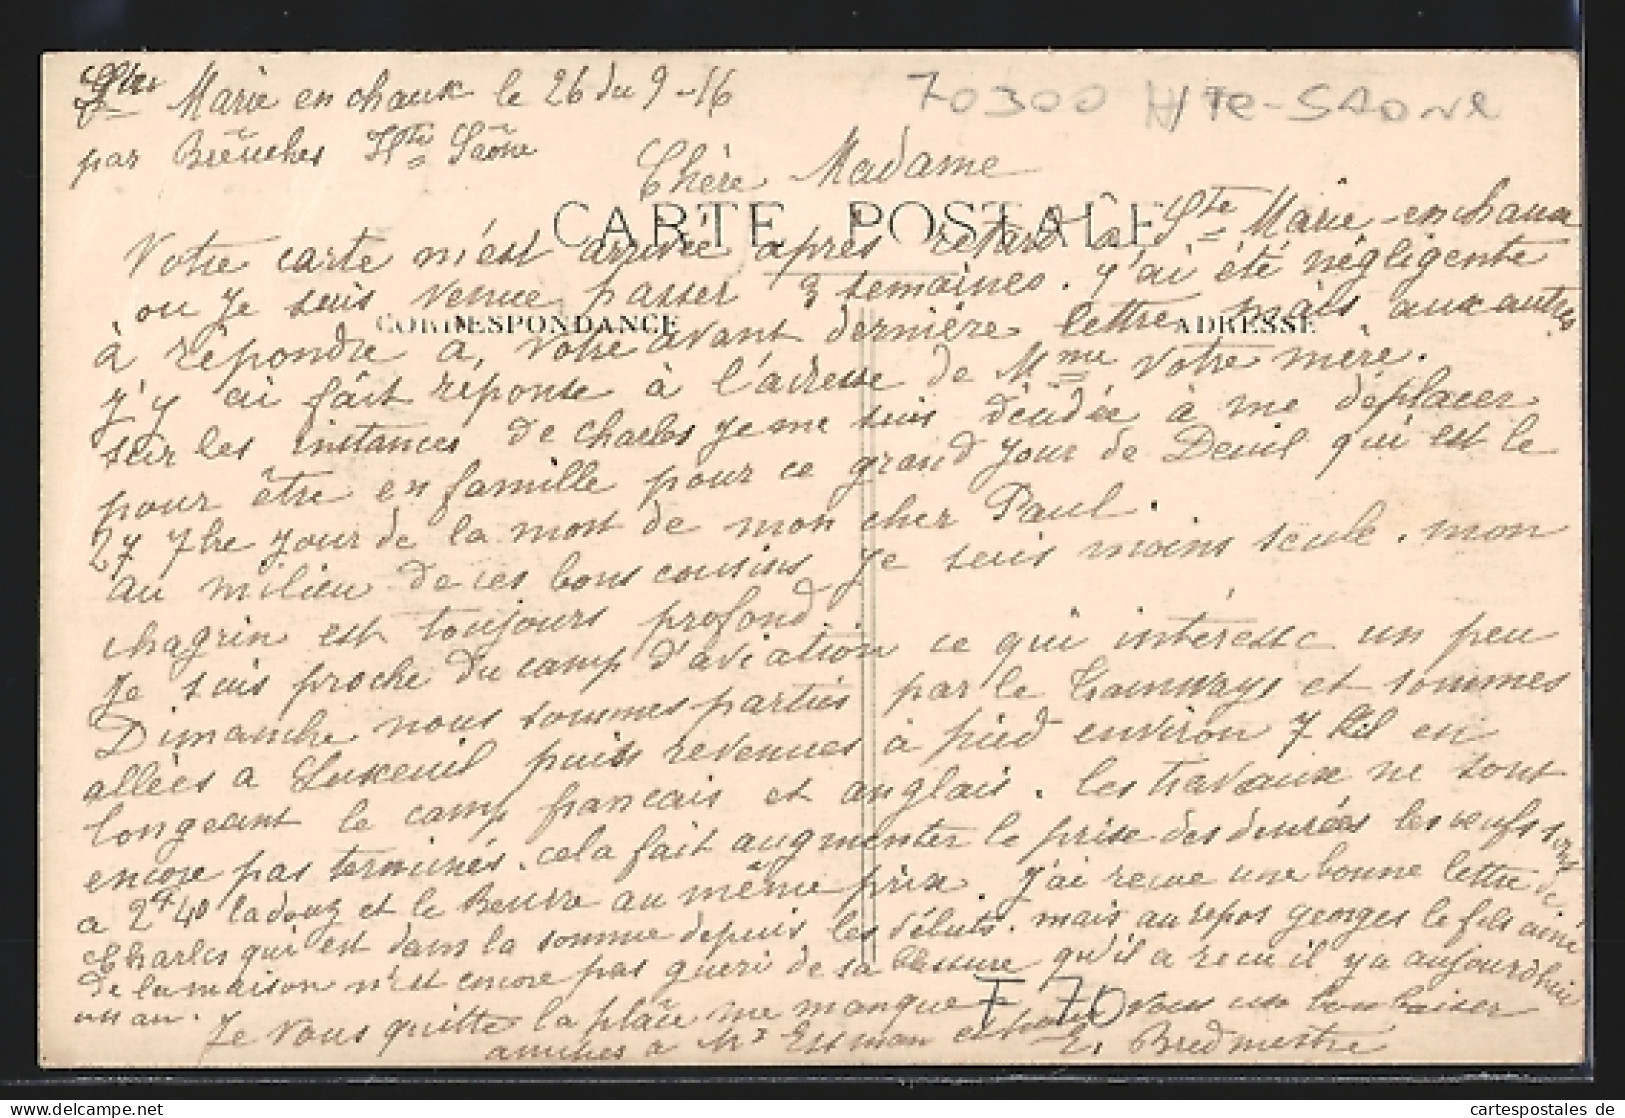 Ste Marie en chaux le 26 du 9-16
70300 HTE-SAONE
par Breuches Hte Saône
Chère Madame
CARTE POSTALE
Votre carte m'est arrivée après retard a Ste Marie-en chaux
ou je suis venue passer 3 semaines. j'ai été négligente
CORRESPONDANCE
ADRESSE
à répondre a, votre avant dernière lettre mais aux autres
j'y ai fait réponse à l'adresse de Mme votre mère.
sur les instances de charles je me suis décidée à me déplacer
pour être en famille pour ce grand jour de Deuil qui est le
27 7bre jour de la mort de mon cher Paul.
au milieu de ces bons cousins je suis moins seule. mon
chagrin est toujours profond.
Je suis proche du camp d'aviation ce qui intéresse un peu
Dimanche nous sommes parties par le Tamways et sommes
allées a Luxeuil puis revenues à pied environ 7 kil en
longeant le camp francais et anglais. les travaux ne sont
encore pas terminés. cela fait augmenter le prix des denrées les œufs sont
a 2f 40 la douz et le Beurre au même prix. J'ai recue une bonne lettre de
Charles qui est dans la somme depuis les débuts. mais au repos georges le fils ainé
de la maison n'est encore pas gueri de sa blessure qu'il a recu il y a aujourdhui
un an.
Je vous quitte la place me manque vous un bon baiser
F 70
amities a Mr Essman E. Bredmestre
cartespostales de